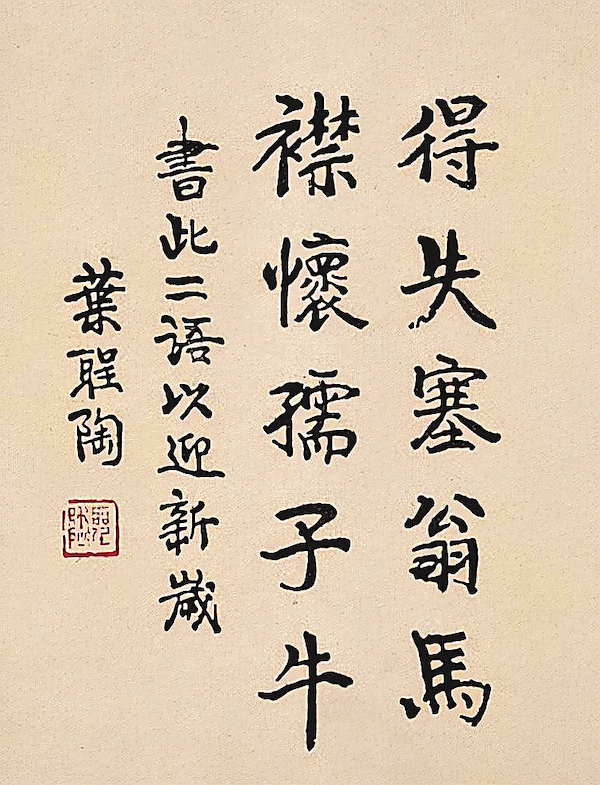 得失塞翁馬
襟懷孺子牛
書此二語以迎新歲
葉聖陶